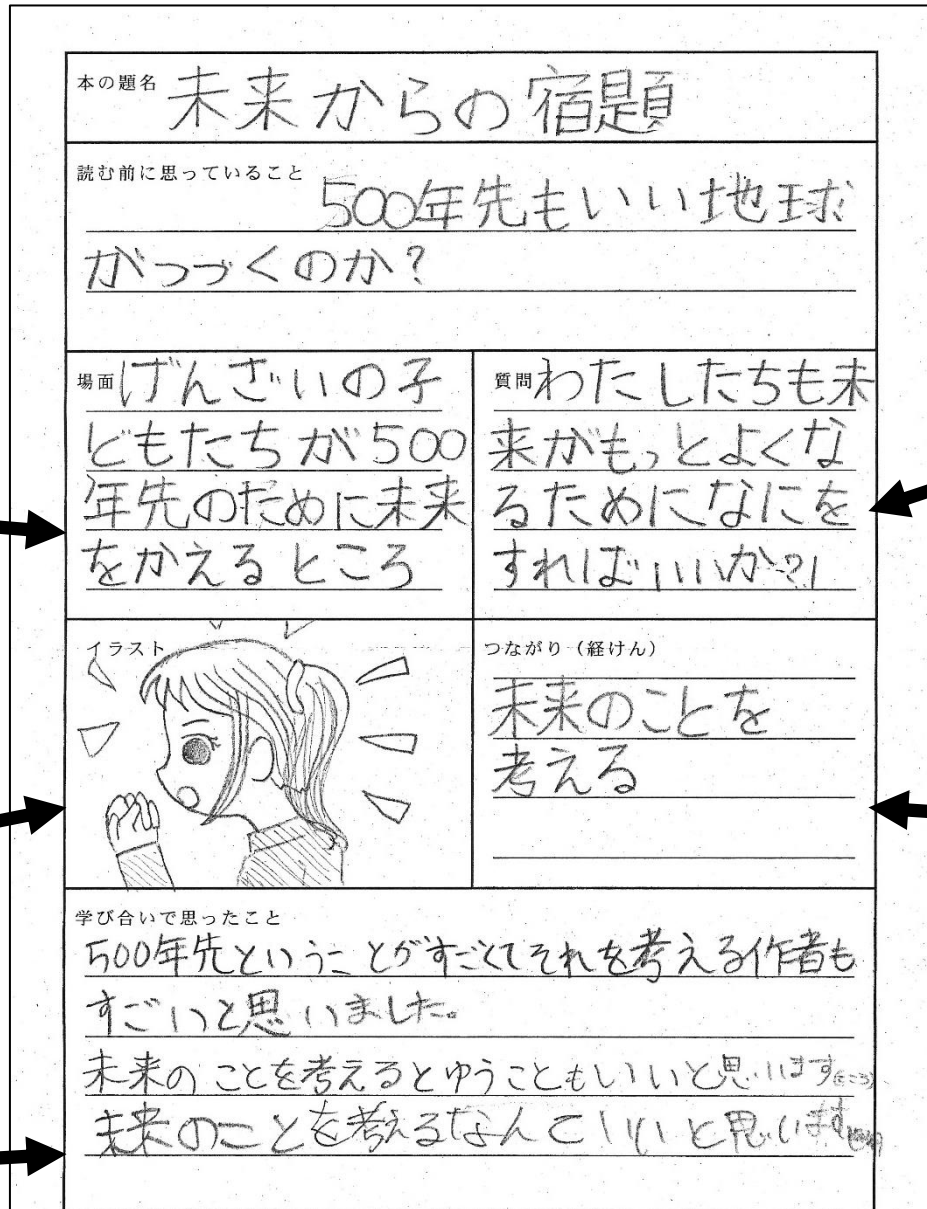 本の題名 未来からの宿題
読む前に思っていること
500年先もいい地球
がつづくのか?
場面 げんざいの子
どもたちが500
年先のために未来
をかえるところ
質問 わたしたちも未
来がもっとよくな
るためになにを
すればいいか?
イラスト
つながり(経けん)
未来のことを
考える
学び合いで思ったこと
500年先ということがすごくてそれを考える作者も
すごいと思いました。
未来のことを考えるとゆうこともいいと思います
未来のことを考えるなんていいと思います